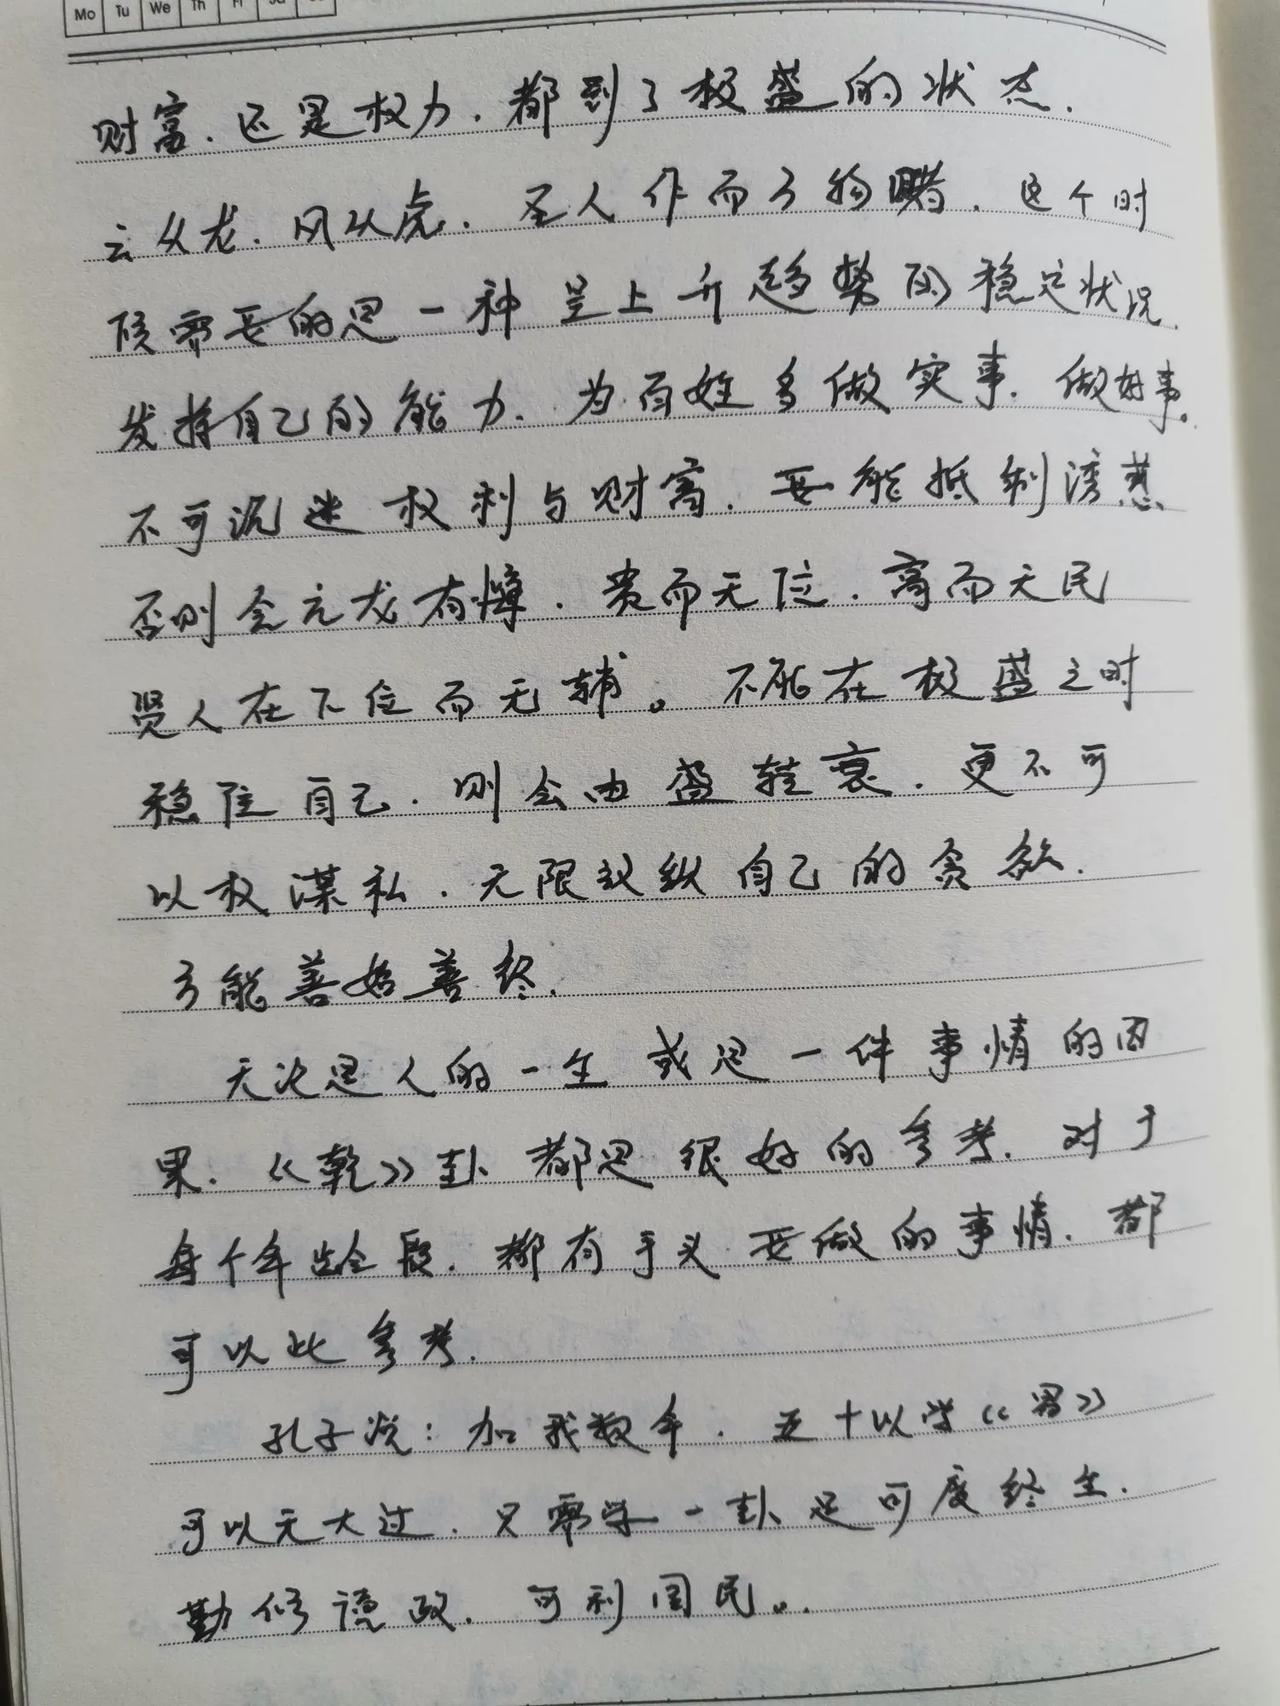 Mo Tu We Th Fr Sa Su
财富、还是权力，都到了极盛的状态，
云从龙，风从虎，圣人作而万物睹，这个时
候需要的是一种呈上升趋势的稳定状况，
发挥自己的能力，为百姓多做实事，做好事。
不可沉迷权利与财富，要能抵制诱惑
否则会亢龙有悔，贵而无位，高而无民
贤人在下位而无辅。不能在极盛之时
稳住自己，则会由盛转衰，更不可
以权谋私，无限放纵自己的贪欲，
方能善始善终，
无论是人的一生或是一件事情的因
果，《乾》卦都是很好的参考，对于
每个年龄段，都有主要做的事情，都
可以此参考，
孔子说：加我数年，五十以学《易》
可以无大过，只需学一卦足可度终生，
勤修德政，可利国民。